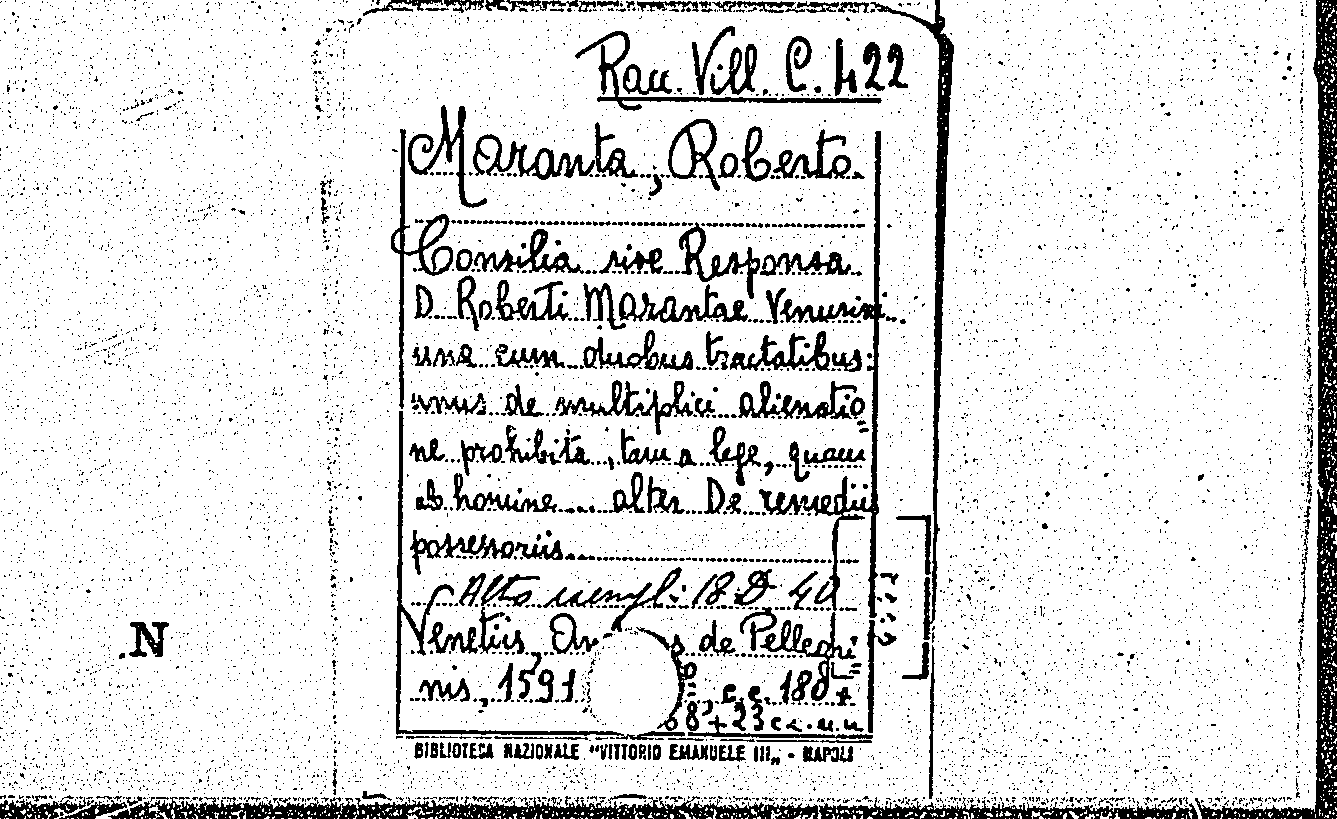 Rac. Vill. C. 422
Maranta, Roberto.
Consilia sive Responsa
D. Roberti Marantae Venusini.
una cum duobus tractatibus:
unus de multiplici alienatio=
ne prohibita, tam a lege, quam
ab homine... alter De remediis
possessoriis.
Altro esempl: 18. D. 40
Venetiis, de Pellegri=
nis, 1591 , c.c. 180+
68+23 c.c. n.n
BIBLIOTECA NAZIONALE "VITTORIO EMANUELE III„ - NAPOLI
.N